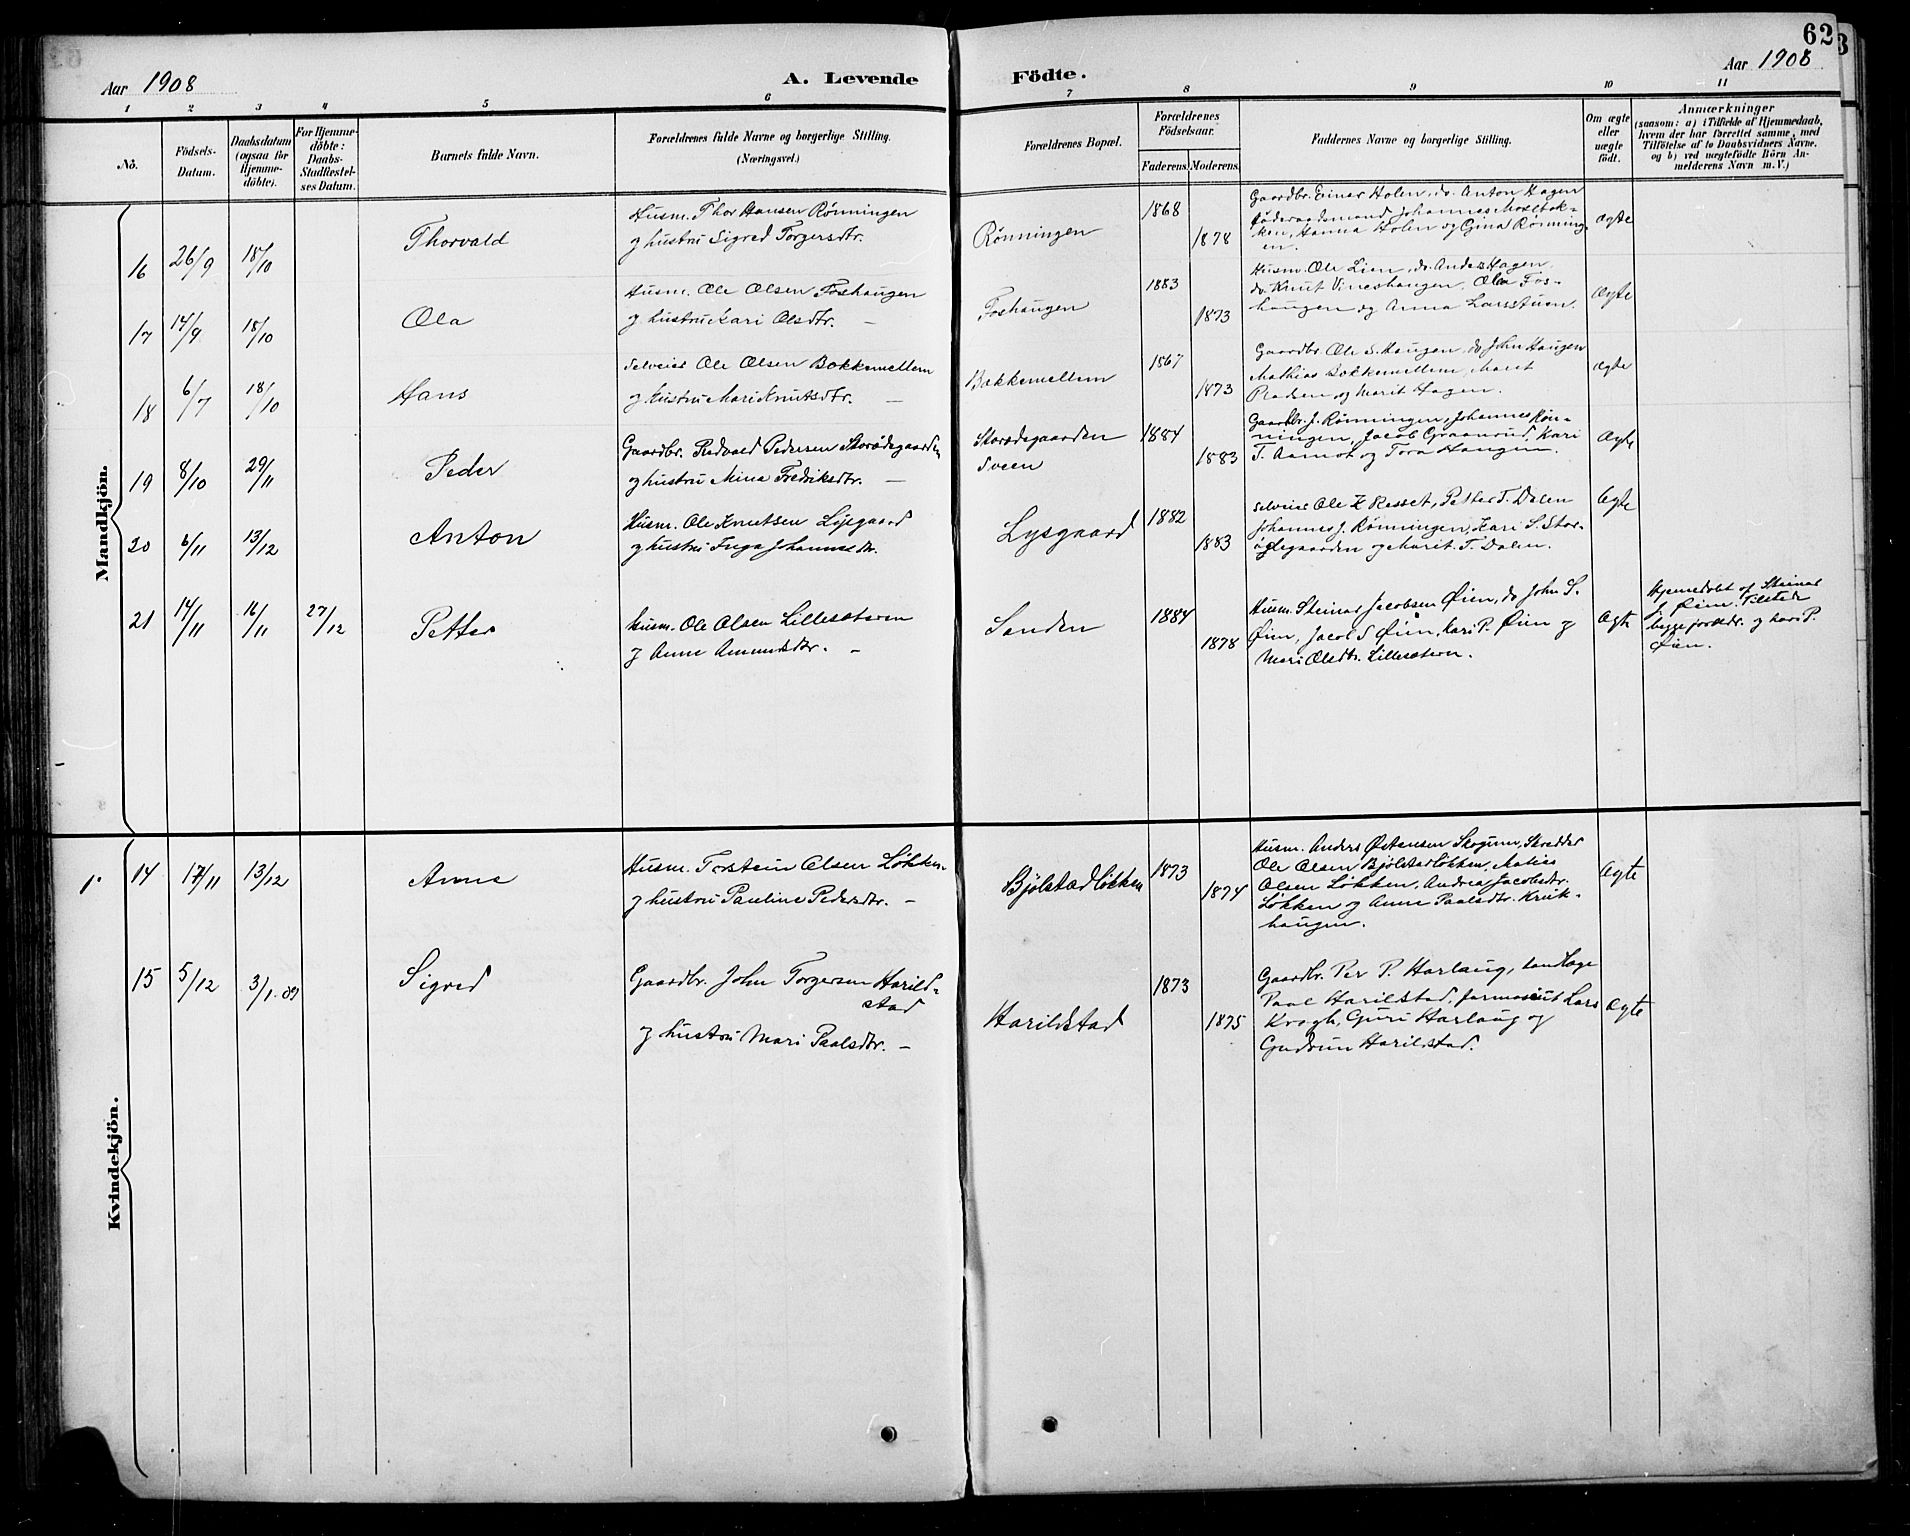 62
Aar 1908
A. Levende
Födte.
Aar 1908
1 2 3 4 5 6 7 8 9 10 11
No.
Födsels-
Datum.
Daabsdatum
(ogsaa for
Hjemme-
döbte).
For Hjemme-
döbte:
Daabs-
Stadfæstel-
ses Datum.
Barnets fulde Navn.
Forældrenes fulde Navne og borgerlige Stilling.
(Næringsvei.)
Forældrenes Bopæl.
Forældrenes
Födselsaar.
Faderens.
Moderens.
Faddernes Navne og borgerlige Stilling.
Om ægte
eller
uægte
födt.
Anmærkninger
(saasom: a) i Tilfælde af Hjemmedaab,
hvem der har forrettet samme, med
Tilföielse af to Daabsvidners Navne.
og b) ved uægtefödte Börn An-
melderens Navn m.V.)
Mandkjön.
16 26/9 18/10 Thorvald
Husm. Thor Hansen Rønningen
og hustru Sigred Torgersdtr.
Rønningen
1868
1878
Gaardbr. Einar Holen, do. Anton Hagen
føderaadsmand Johannes Moelbek-
ken, Hanna Holen og Gina Rønning
en.
ægte
17 14/9 18/10 Ola
Husm. Ole Olsen Foshaugen
og hustru Kari Olsdtr. —
Foshaugen
1883
1873
Husm. Ole Lien, do. Anders Hagen,
do. Knut Vineshaugen, Ola Fos-
haugen og Anna Larsstuen.
Ægte
18 6/7 18/10 Hans
Selveier Ole Olsen Bakkemellem
og hustru Mari Knutsdtr. —
Bakkemellem
1867
1873
Gaardbr. Ole S. Haugen, do. John Haugen
Mathias Bakkemellem, Marit
og Marit Hagen.
ægte
19 8/10 29/11 Peder
Gaardbr. Redvald Pedersen Storødegaarden
og hustru Mina Fredriksdtr. —
Storødegaarden
Sveen
1884
1883
Gaardbr. J. Rønningen, Johannes Røn-
ningen, Jacob Graanrud, Kari
T. Aamot og Tora Haugen.
Ægte
20 6/11 13/12 Anton
Husm. Ole Knutsen Lysgaard
og hustru Inga Johannesdtr.
Lysgaard
1882
1883
Selveier Ole K Resset, Petter T. Dalen
Johannes J. Rønningen, Kari S. Stor-
ødegaarden og Marit T. Dalen.
Ægte
21 14/11 16/11 27/12 Petter
Husm. Ole Olsen Lillesæteren
og Anne Amundsdtr. —
Sanden
1884
1878
Husm. Steinar Jacobsen Øien, do John S.
Øien, Jacob S Øien, Kari P. Øien og
Mari Olsdtr. Lillesætern.
Ægte
Hjemmedøbt af Steinar
J. Øien. Tilstede
begge forældr. og Kari P.
Øien.
Kvindekjön.
1. 14 17/11 13/12 Anne
Husm. Torstein Olsen Løkken
og hustru Pauline Pedersdtr. —
Bjølstadløkken
1873
1874
Husm. Anders Østensen Skogum, Skredder
Ole Olsen Bjølstadløkken, Matias
Olsen Løkken, Andrea Jacobsdtr.
Løkken og Anne Paalsdtr. Kruk-
haugen.
Ægte
15 5/12 3/1.09 Sigred
Gaardbr. John Torgersen Harild-
stad
og hustru Mari Paalsdtr. —
Harildstad
1873
1875
Gaardbr. Per P. Harlaug, tandlæge
Paal Harildstad, farmaceut Lars
Krogh, Guri Harlaug og
Gudrun Harildstad.
Ægte